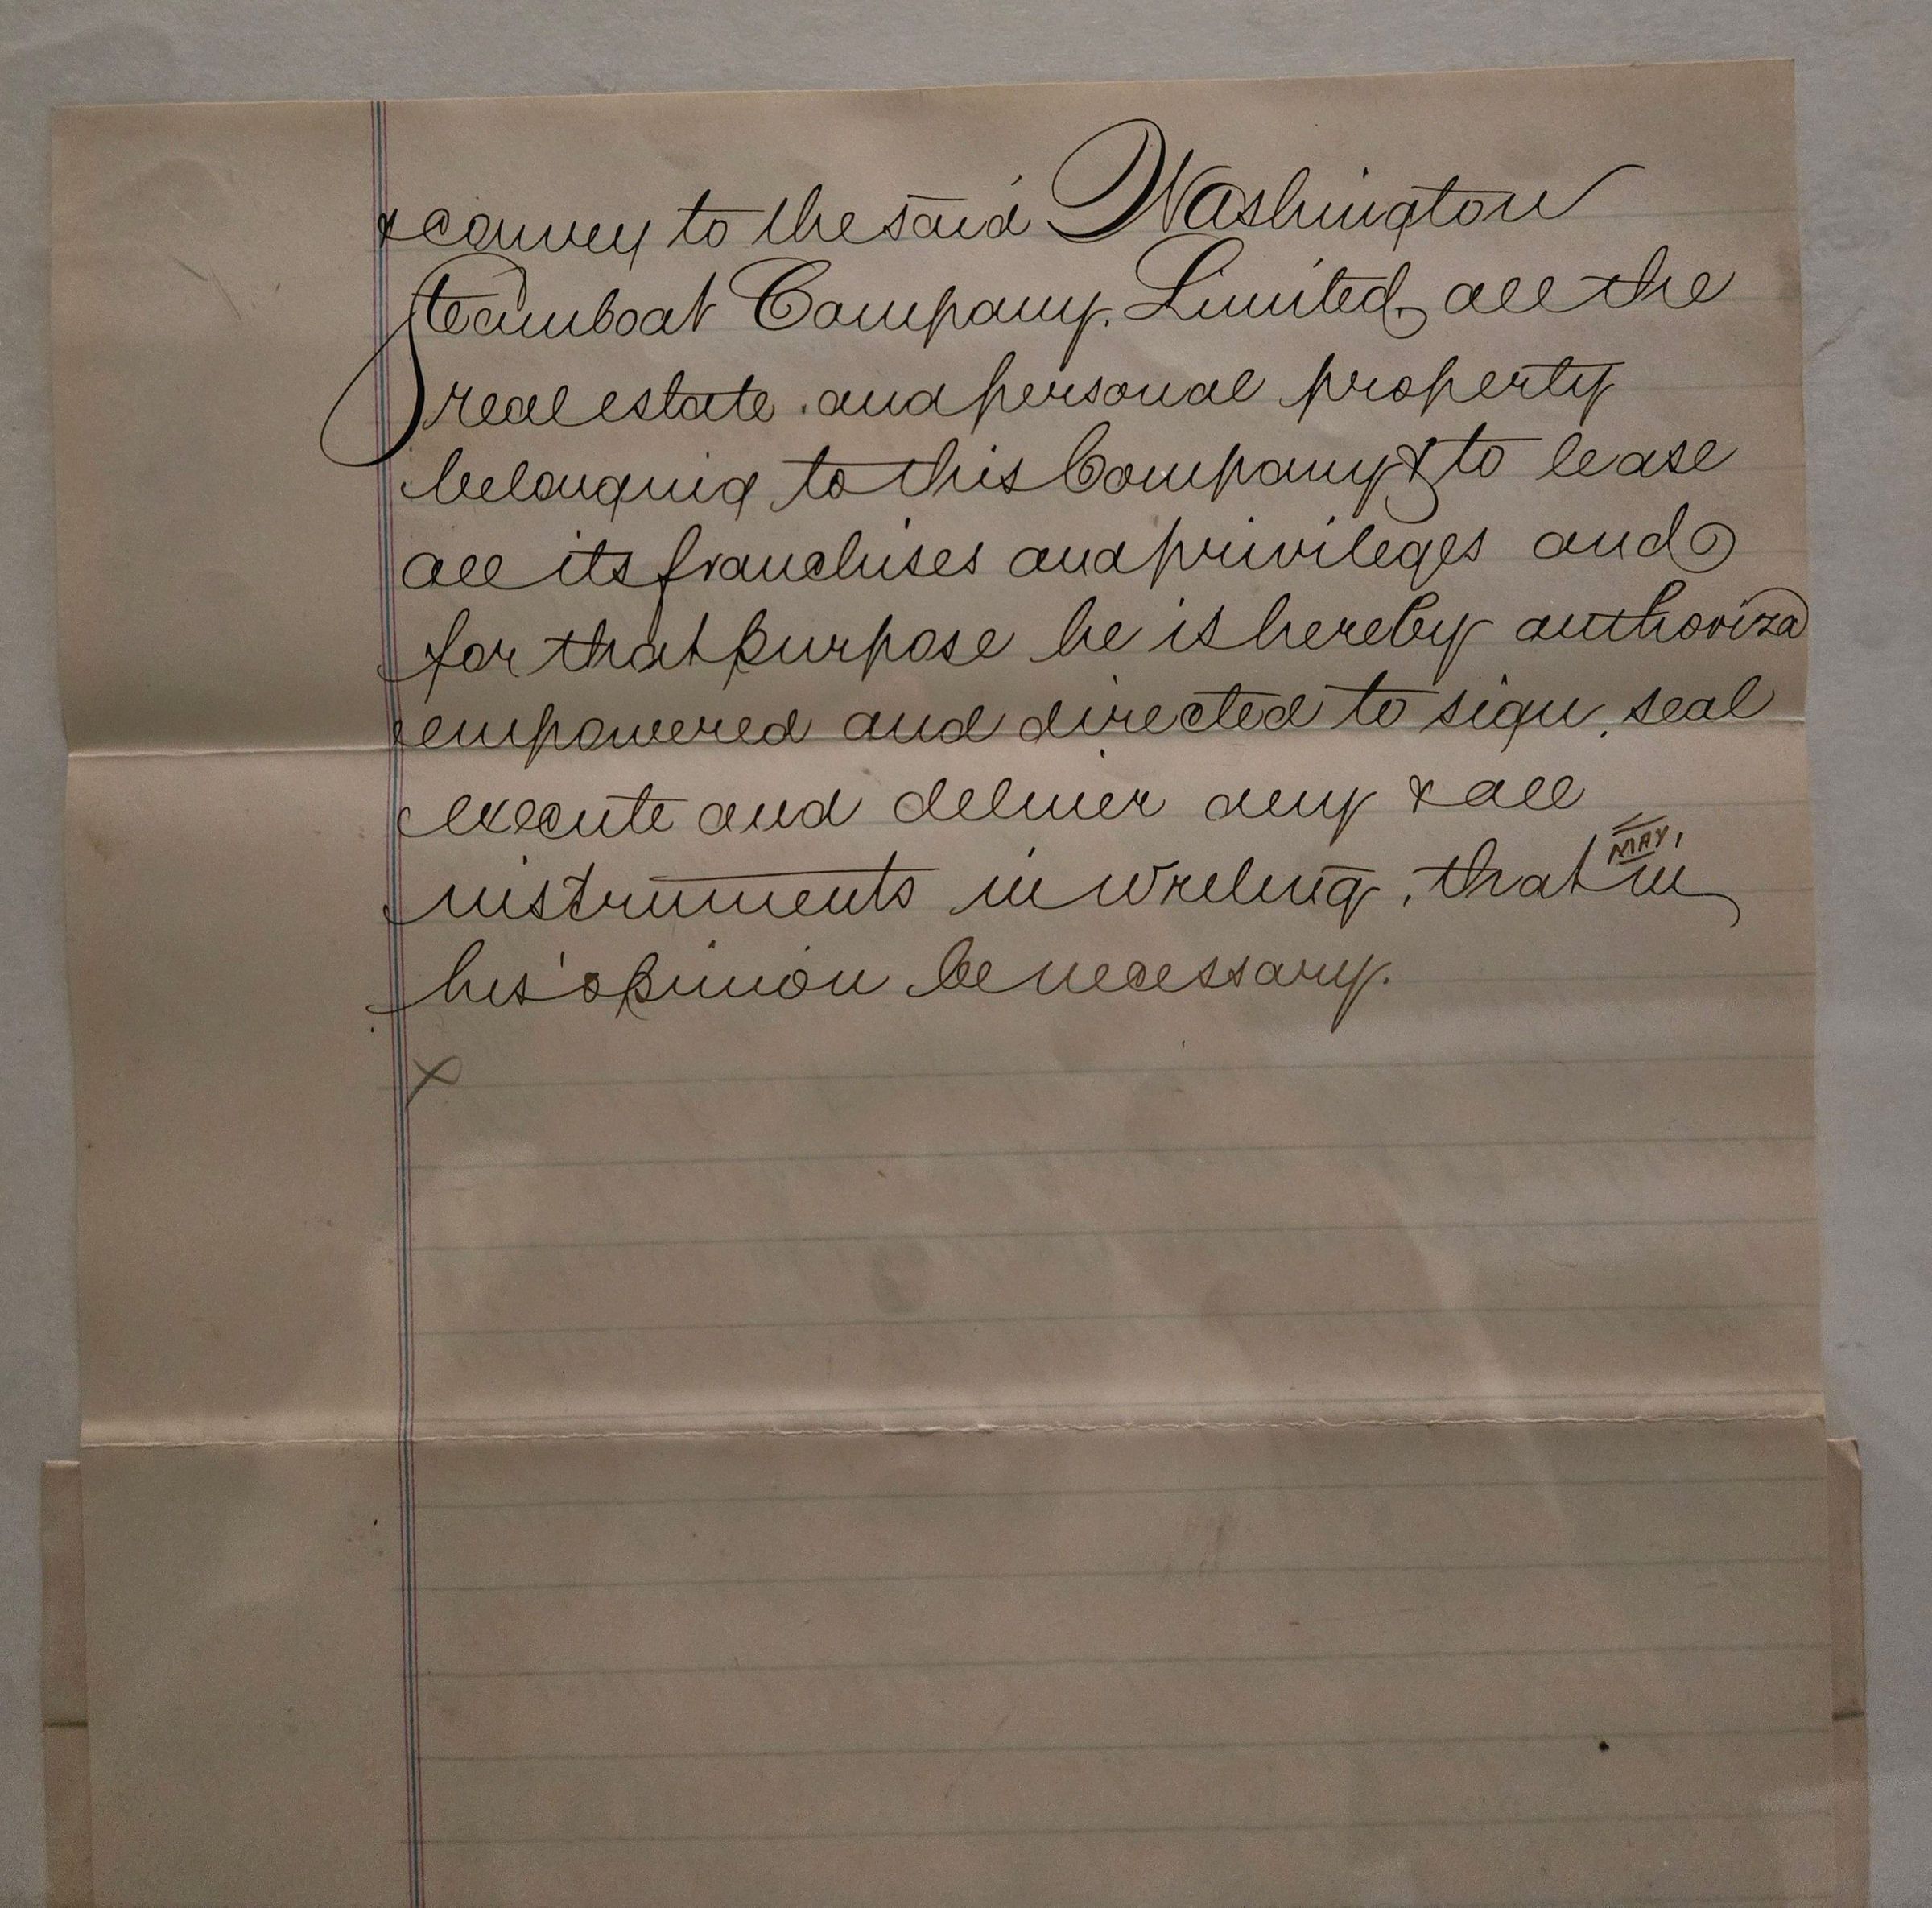 & convey to the said Washington
Steamboat Company, Limited, all the
real estate and personal property
belonging to this Company & to lease
all its franchises and privileges and
for that purpose he is hereby authorized
empowered and directed to sign, seal
execute and deliver any & all
MAY,
instruments in writing, that in
his opinion be necessary.
x